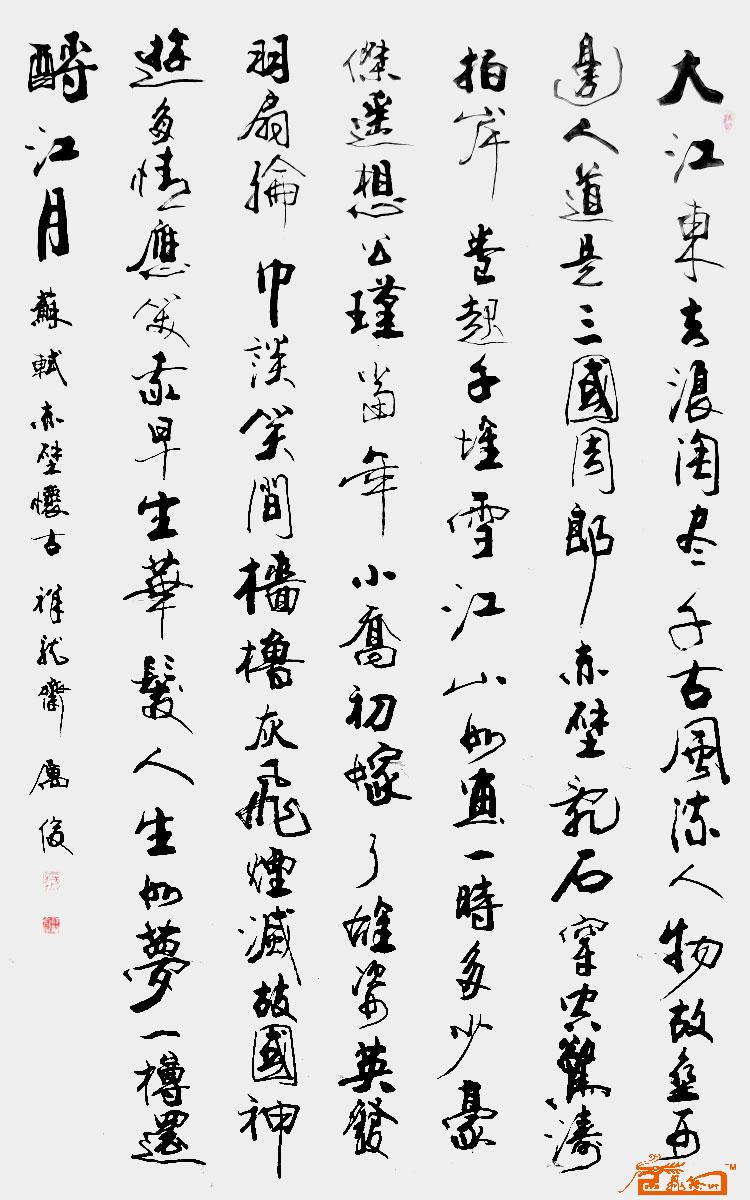 大江東去浪淘尽千古風流人物故壘西
邊人道是三國周郎赤壁亂石穿空驚濤
拍岸卷起千堆雪江山如畫一時多少豪
傑遥想公瑾當年小喬初嫁了雄姿英發
羽扇綸巾談笑間檣櫓灰飛煙滅故國神
遊多情應笑我早生華髮人生如夢一樽還
酹江月蘇軾赤壁懷古祥龍齋厲俊